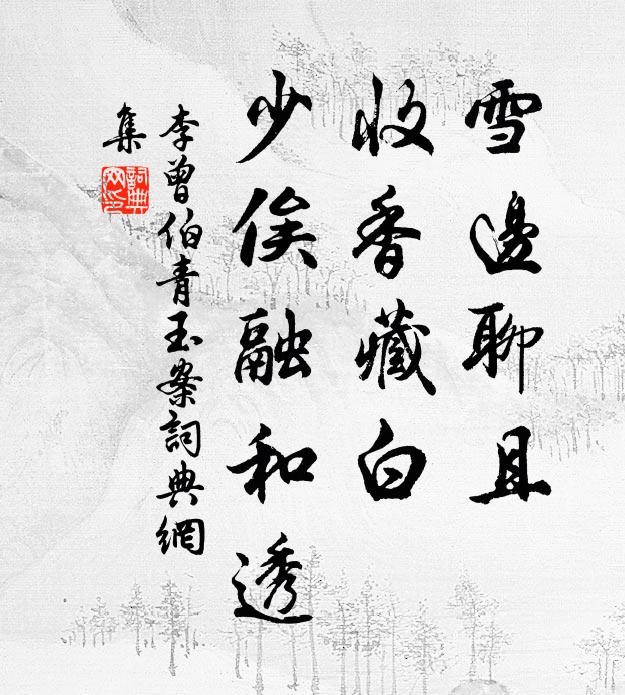 雪邊聊且
收香藏白
少俟融和透
李曾伯青玉案詞典網
集
詞典
网印